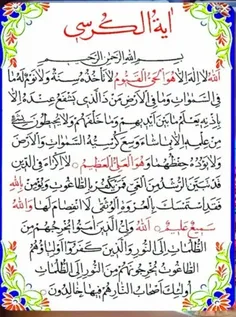 آية الكرسي
بسم الله الرحمن الرحيم
الله لا اله الا هو الحي القيوم لا تأخذه سنة ولا نوم له ما
في السموات وما في الارض من ذا الذي يشفع عنده الا
باذنه يعلم ما بين ايديهم وما خلفهم ولا يحيطون بشيء
من علمه الا بما شاء وسع كرسيه السموات والارض
ولا يؤده حفظهما وهو العلي العظيم لا اكراه في الدين
قد تبين الرشد من الغي فمن يكفر بالطاغوت ويؤمن بالله
فقد استمسك بالعروة الوثقى لا انفصام لها والله
سميع عليم الله ولي الذين آمنوا يخرجهم من
الظلمات الى النور والذين كفروا اولياؤهم
الطاغوت يخرجونهم من النور الى الظلمات
اولئك اصحاب النار هم فيها خالدون